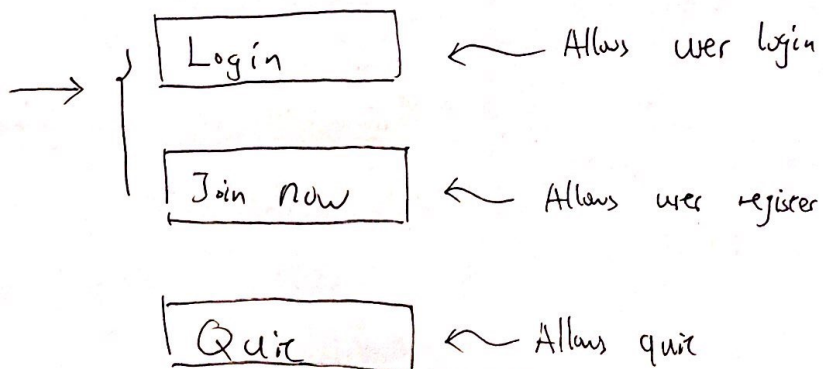 Login
Allows user login
Join now
Allows user register
Quit
Allows quit